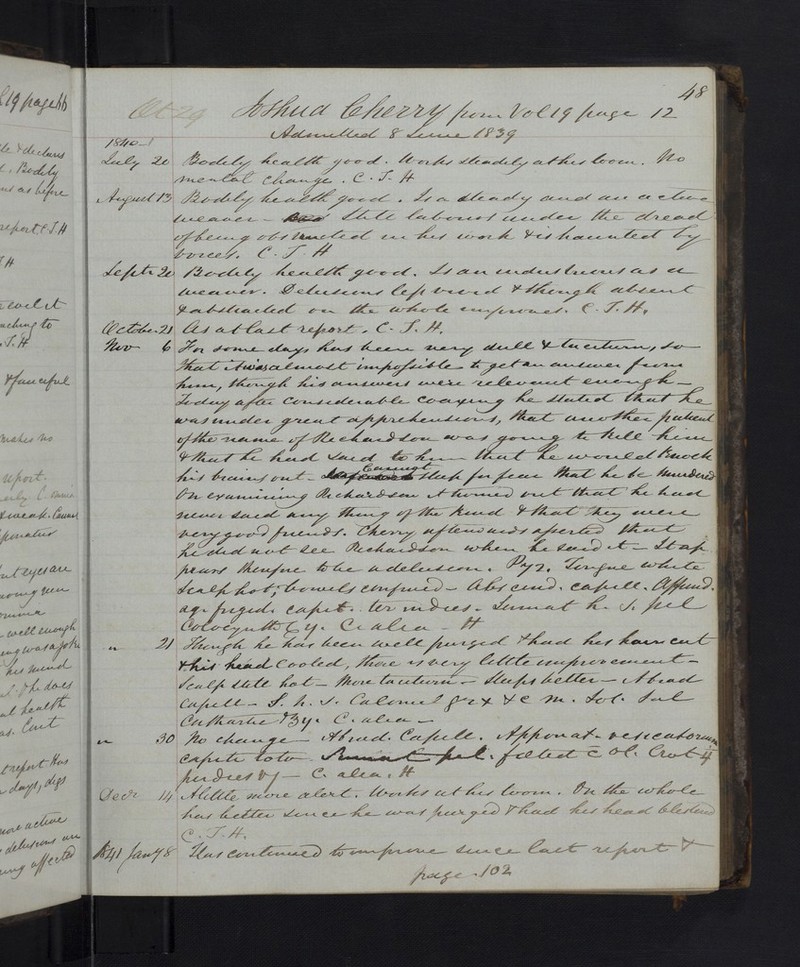 48
Aet 29 Joshua Cherry from Vol 19 page 12
Admitted 8 June 1839
1840
July 20 Bodily health good. Works steadily at his loom. No
mental change. C. T. H
August 13 Bodily health good. Is a steady and an active
weaver - Still labours under the dread
of being obstructed in his work & is haunted by
voices. C. T. H
Septr 20 Bodily health good. Is an industrious as a
weaver. Delusions less vivid & though absent
& abstracted on the whole improves. C. T. H.
October 21 As at last report. C. T. H.
Nov 6 For some days has been very dull & taciturn, so
that it was almost impossible to get an answer from
him, though his answers were relevant enough -
Today after considerable coaxing he stated that he
was under great apprehensions, that another patient
of the name of Richardson was going to kill him
& that he had said to him that he would knock
his brains out - Cannot sleep for fear that he be murdered
On examining Richardson it turned out that he had
never said any thing of the kind & that they were
very good friends. Cherry afterwards asserted that
he did not see Richardson when he said it - It ap
pears therefore to be a delusion. Tongue white
Scalp hot; bowels confined - Abscind. capill. Affund.
aq. frigid. capit. ter indies - Sumat h. s. pil
Colocynth Cr alia - H
" 21 Though he has been well purged & had his hair cut
& his head cooled, there is very little improvement -
Scalp still hot - More taciturn - Sleeps better - Abrad
Capill - S. h. s. Calomel gr x & c m. Sol. Sal
Cathartic ℥y. C. alia -
" 30 No change - Abrad. Capill. Apponat. vesicatorium
capite toto. C. alia. H
Decr 14 A little more alert. Works at his loom. On the whole
has better since he was purged & had his head blistered
C. T. H.
1841 Jany 8 Has continued to improve since last report &
page 102